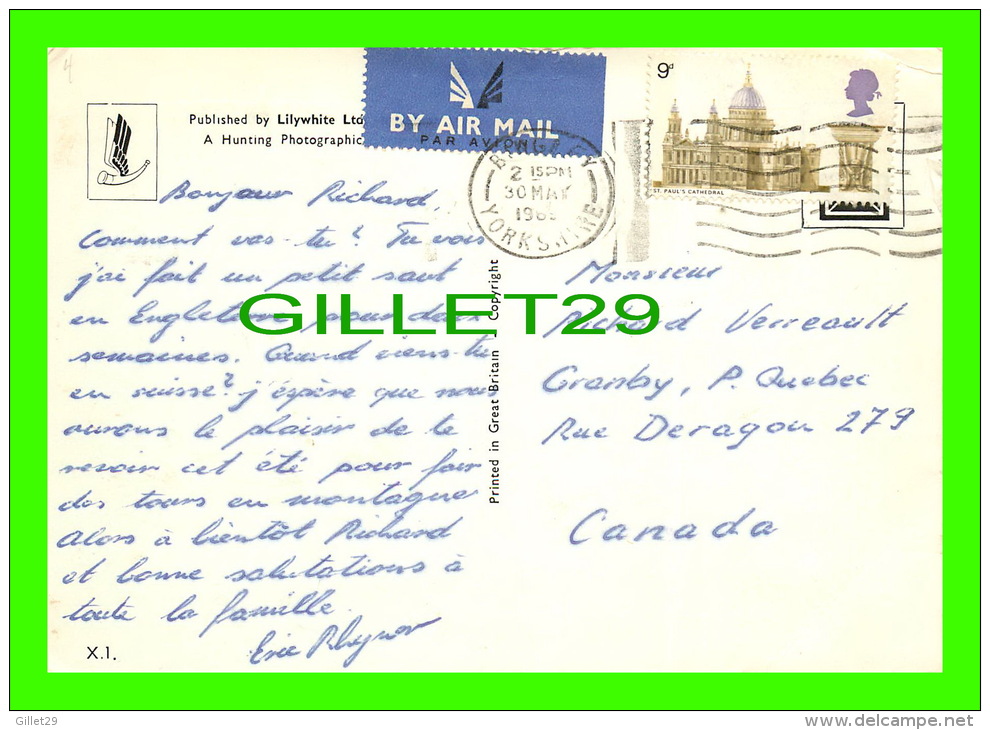 4
Published by Lilywhite Ltd
A Hunting Photographic
BY AIR MAIL
PAR AVION
BINGLEY
2 15PM
30 MAY
196
YORKSHIRE
9d
ST. PAUL'S CATHEDRAL
Bonjour Richard,
Comment vas-tu? Tu vois
j'ai fait un petit saut
en Engleterre pour deux
semaines. Quand viens-tu
en suisse? j'éspère que nous
aurons le plaisir de te
revoir cet été pour fair
des tours en montagne
Alors à bientôt Richard
et bonne salutations à
toute la famille.
Eric
X.1.
Printed in Great Britain - Copyright
Monsieur
Richard Verreault
Granby, P. Quebec
Rue Deragon 279
Canada
GILLET29
Gillet29
www.delcampe.net